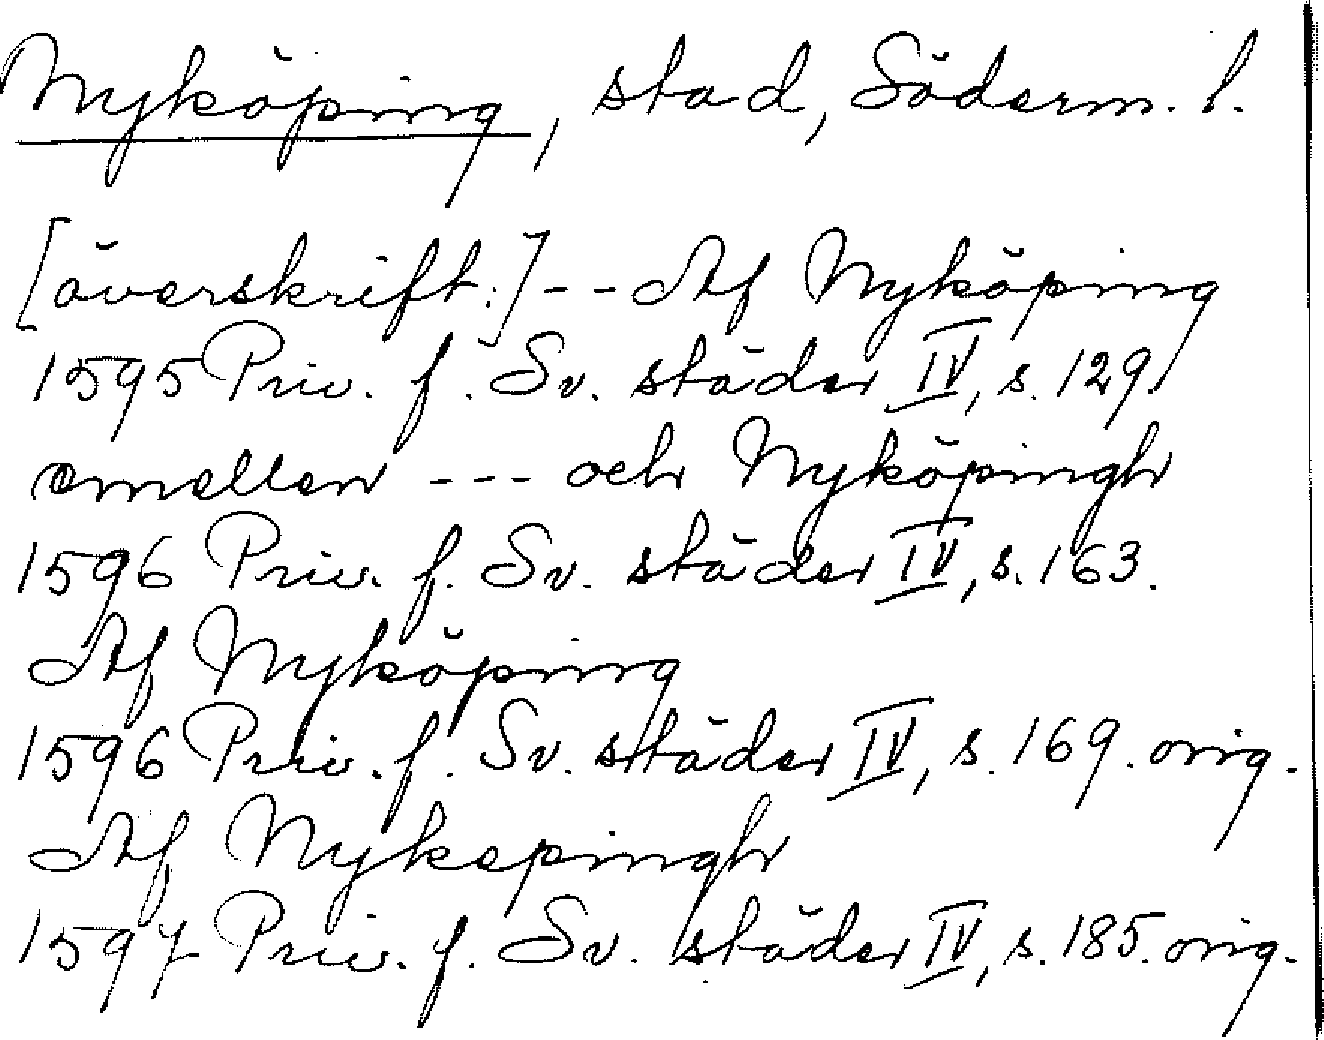 Nyköping, stad, Söderm. l.
[överskrift:] -- Af Nyköping
1595 Priv. f. Sv. städer IV, s. 129
emellen --- och Nyköpingh
1596 Priv. f. Sv. städer IV, s. 163.
Af Nyköping
1596 Priv. f. Sv. städer IV, s. 169. orig.
Af Nykepingh
1597 Priv. f. Sv. städer IV, s. 185. orig.